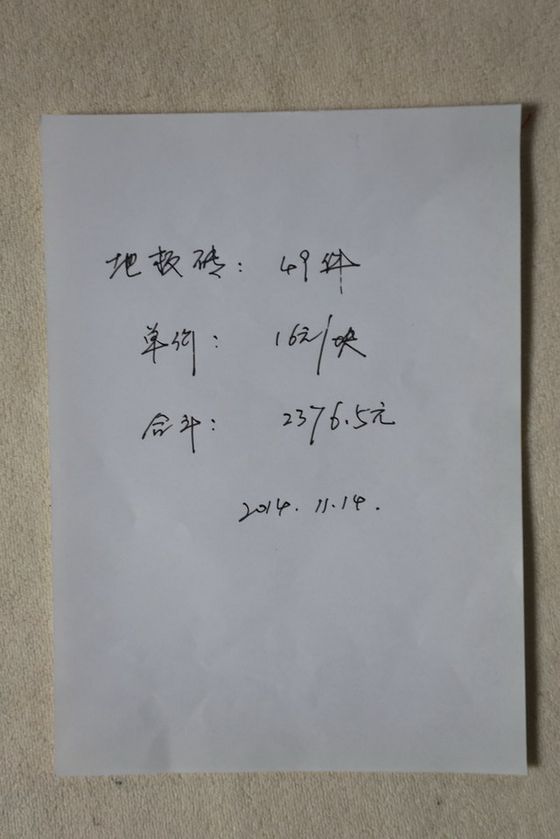 地板砖: 49件
单价: 16元/块
合计: 2376.5元
2014.11.14.